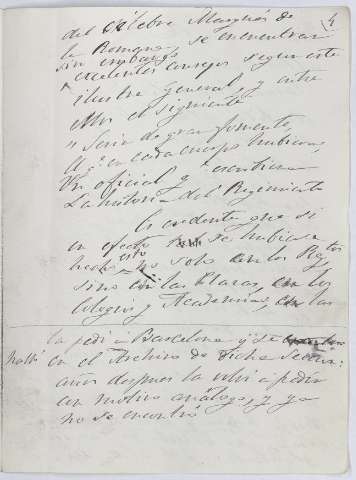 4
del célebre Marqués de
la Romana, se encuentran
sin embargo
excelentes consejos segun este
ilustre general, y entre
ellos el siguiente
"Seria de gran fomento,
el q.e en cada cuerpo hubiera
un oficial q.e escribiera
la historia del Regimiento
Es evidente que si
en efecto se hubiera
hecho esto no solo en los Rgtos
sino en las Plazas, en los
Colegios y Academias, en las
la pedí á Barcelona y se
halló en el Archivo de dicha Seccion:
años despues la volví á pedir
con motivo análogo, y ya
no se encontró